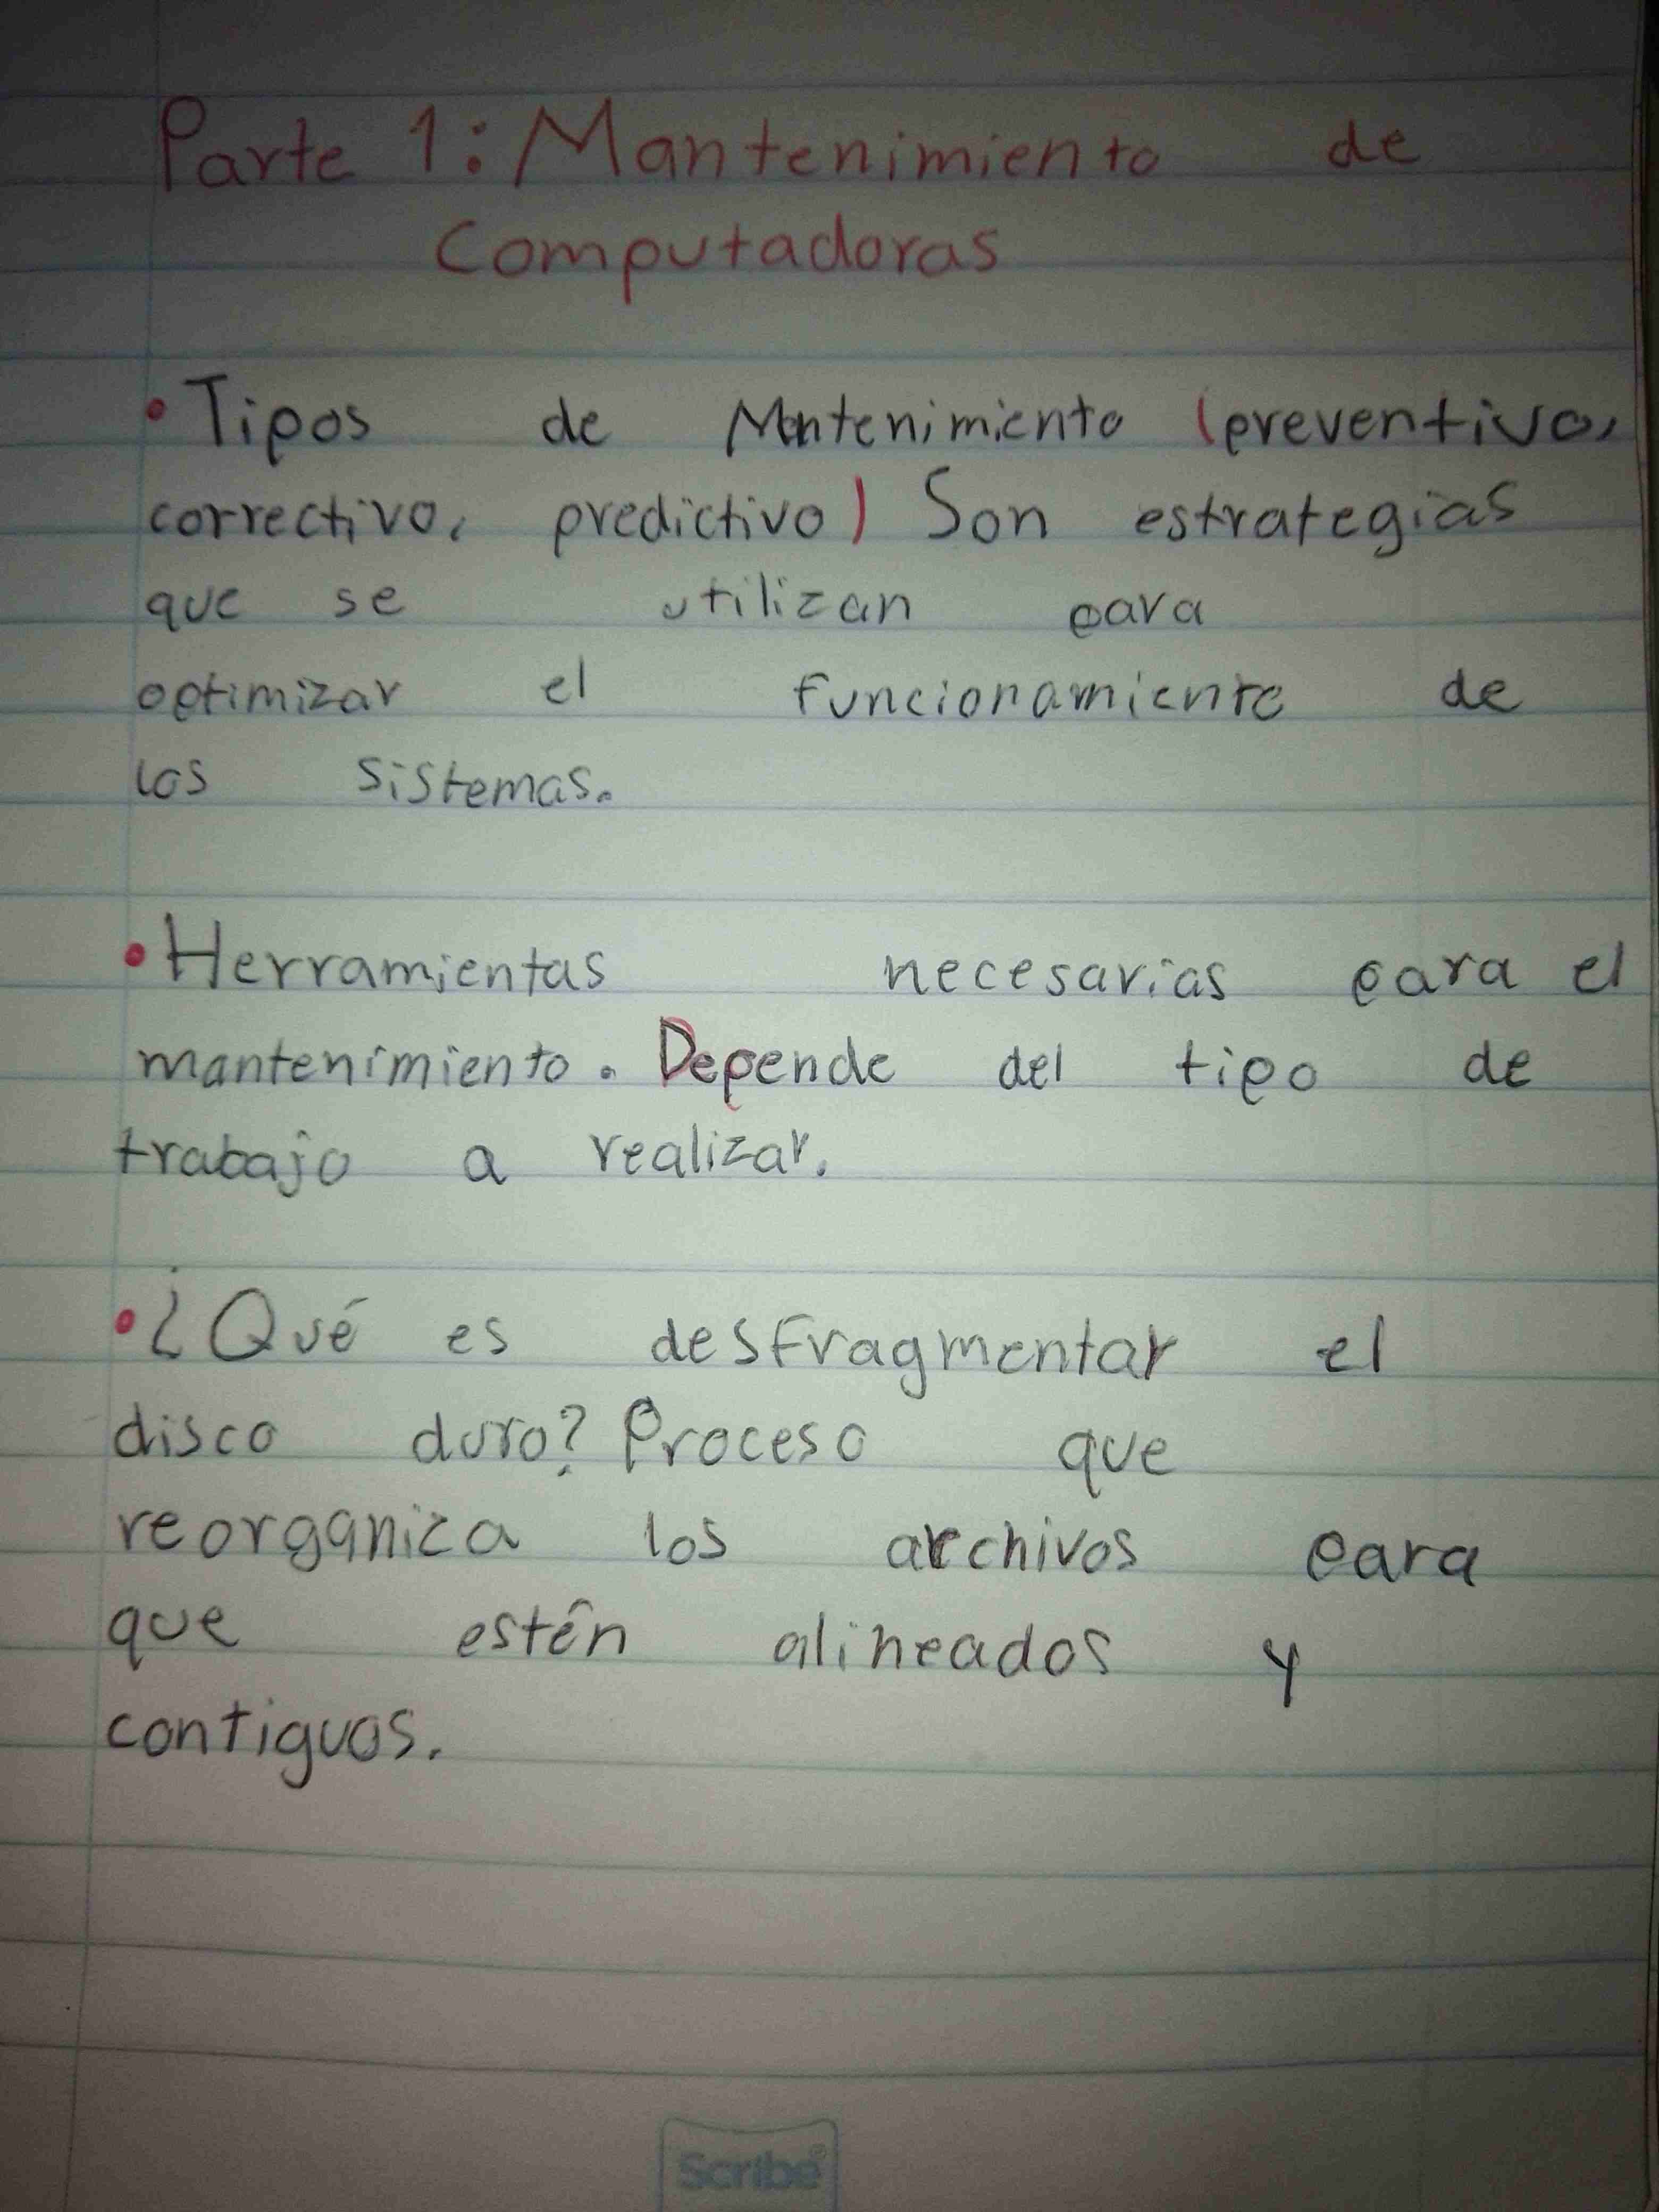 Parte 1: Mantenimiento de
Computadoras
• Tipos de Mantenimiento (preventivo,
correctivo, predictivo) Son estrategias
que se utilizan para
optimizar el funcionamiento de
los sistemas.
• Herramientas necesarias para el
mantenimiento. Depende del tipo de
trabajo a realizar.
• ¿Qué es desfragmentar el
disco duro? Proceso que
reorganiza los archivos para
que estén alineados y
contiguos.
Scribe®